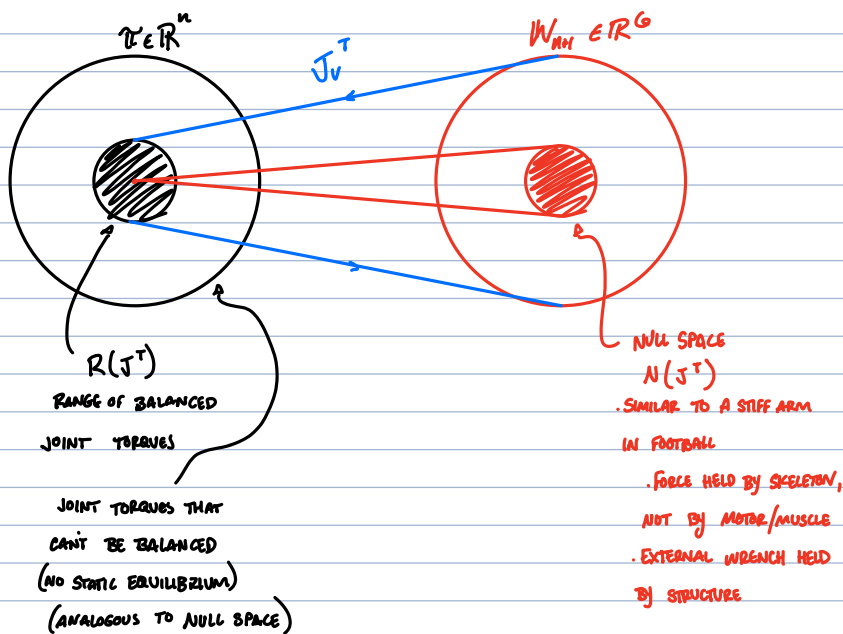 τ ∈ ℝⁿ
W_{n+1} ∈ ℝ⁶
J_v^T
R(J^T)
RANGE OF BALANCED
JOINT TORQUES
JOINT TORQUES THAT
CAN'T BE BALANCED
(NO STATIC EQUILIBRIUM)
(ANALOGOUS TO NULL SPACE)
NULL SPACE
N(J^T)
. SIMILAR TO A STIFF ARM
IN FOOTBALL
. FORCE HELD BY SKELETON,
NOT BY MOTOR/MUSCLE
. EXTERNAL WRENCH HELD
BY STRUCTURE